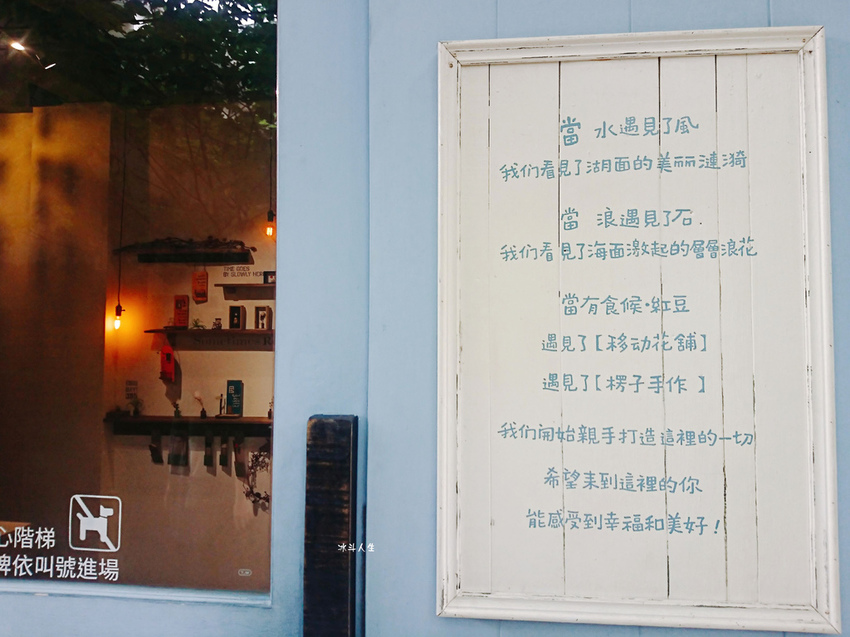 當 水遇見了風
我们看見了湖面的美丽漣漪
當 浪遇見了石.
我们看見了海面激起的層層浪花
當有食候·紅豆
遇見了【移动花舖】
遇見了【楞子手作】
我们開始親手打造這裡的一切
希望来到這裡的你
能感受到幸福和美好！
TIME GOES
BY SLOWLY HERE
心階梯
牌依叫號進場
冰斗人生